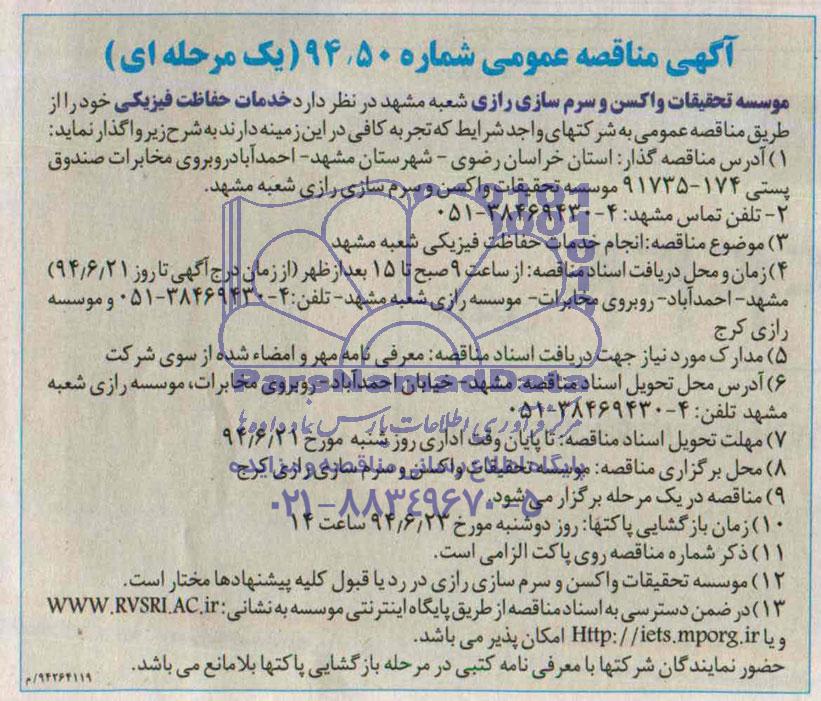 آگهی مناقصه عمومی شماره ۹۴٫۵۰ (یک مرحله ای)
موسسه تحقیقات واکسن و سرم سازی رازی شعبه مشهد در نظر دارد خدمات حفاظت فیزیکی خود را از
طریق مناقصه عمومی به شرکتهای واجد شرایط که تجربه کافی در این زمینه دارند به شرح زیر واگذار نماید:
۱) آدرس مناقصه گذار: استان خراسان رضوی - شهرستان مشهد- احمدآباد روبروی مخابرات صندوق
پستی ۱۷۴-۹۱۷۳۵ موسسه تحقیقات واکسن و سرم سازی رازی شعبه مشهد.
۲- تلفن تماس مشهد: ۴-۳۸۴۶۹۴۳۰-۰۵۱
۳) موضوع مناقصه: انجام خدمات حفاظت فیزیکی شعبه مشهد
۴) زمان و محل دریافت اسناد مناقصه: از ساعت ۹ صبح تا ۱۵ بعد از ظهر (از زمان درج آگهی تا روز ۹۴٫۶٫۲۱)
مشهد- احمدآباد- روبروی مخابرات- موسسه رازی شعبه مشهد- تلفن: ۴-۳۸۴۶۹۴۳۰-۰۵۱ و موسسه
رازی کرج
۵) مدارک مورد نیاز جهت دریافت اسناد مناقصه: معرفی نامه مهر و امضاء شده از سوی شرکت
۶) آدرس محل تحویل اسناد مناقصه: مشهد- خیابان احمدآباد- روبروی مخابرات، موسسه رازی شعبه
مشهد تلفن: ۴-۳۸۴۶۹۴۳۰-۰۵۱
۷) مهلت تحویل اسناد مناقصه: تا پایان وقت اداری روز شنبه مورخ ۹۴٫۶٫۲۱
۸) محل برگزاری مناقصه: موسسه تحقیقات واکسن و سرم سازی رازی کرج
۹) مناقصه در یک مرحله برگزار می شود.
۱۰) زمان بازگشایی پاکتها: روز دوشنبه مورخ ۹۴٫۶٫۲۳ ساعت ۱۴
۱۱) ذکر شماره مناقصه روی پاکت الزامی است.
۱۲) موسسه تحقیقات واکسن و سرم سازی رازی در رد یا قبول کلیه پیشنهادها مختار است.
۱۳) در ضمن دسترسی به اسناد مناقصه از طریق پایگاه اینترنتی موسسه به نشانی: WWW.RVSRI.AC.ir
و یا Http://iets.mporg.ir امکان پذیر می باشد.
حضور نمایندگان شرکتها با معرفی نامه کتبی در مرحله بازگشایی پاکتها بلامانع می باشد.
۹۴۲۶۴۱۱۹/م
ParsNamadData
مرکز فرآوری اطلاعات پارس نماد داده ها
پایگاه اطلاع رسانی مناقصه و مزایده
۰۲۱-۸۸۳۴۹۶۷۰-۵